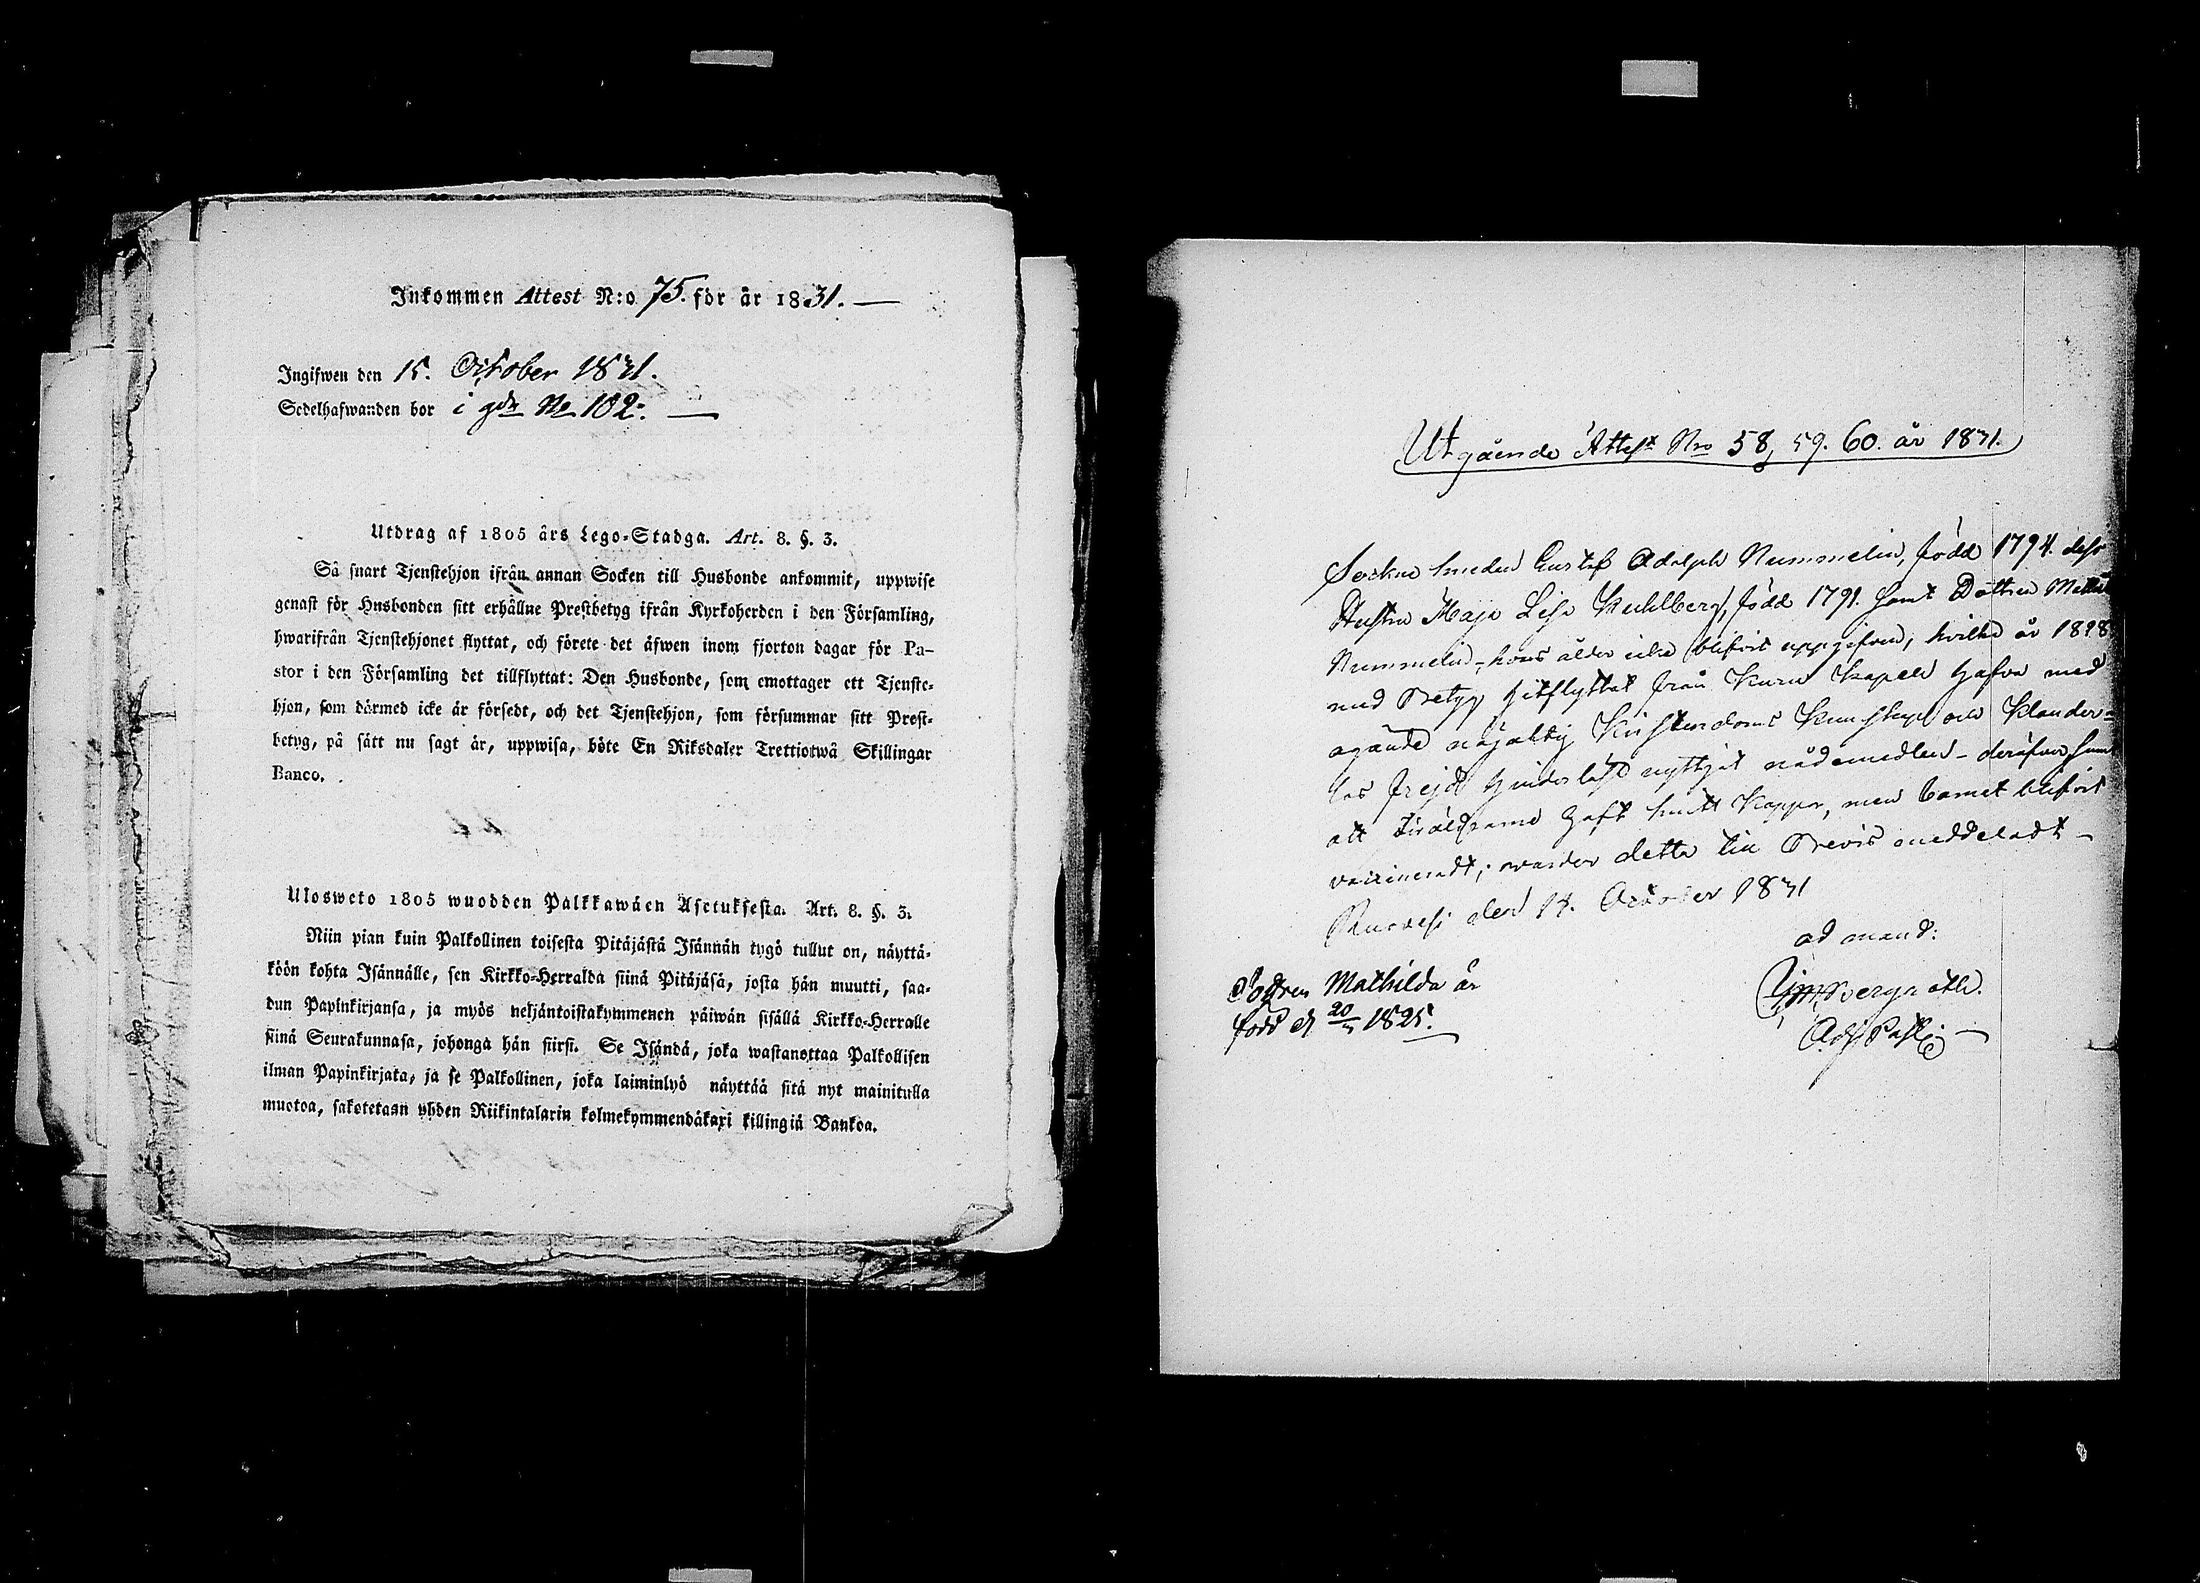 Inkommen Attest N:o 75. för år 1831. —
Ingifwen den 15. October 1831.
Sedelhafwanden bor i gdn No 102. —
Utdrag af 1805 års Lego-Stadga. Art. 8. §. 3.
Så snart Tjenstehjon ifrån annan Socken till Husbonde ankommit, uppwise
genast för Husbonden sitt erhållne Prestbetyg ifrån Kyrkoherden i den Församling,
hwarifrån Tjenstehjonet flyttat, och förete det äfwen inom fjorton dagar för Pa-
stor i den Församling det tillflyttat: Den Husbonde, som emottager ett Tjenste-
hjon, som därmed icke är försedt, och det Tjenstehjon, som försummar sitt Prest-
betyg, på sätt nu sagt är, uppwisa, böte En Riksdaler Trettiotwå Skillingar
Banco.
Ulosweto 1805 wuodden Palkkawäen Asetuksesta. Art. 8. §. 3.
Niin pian kuin Palkollinen toisesta Pitäjästä Isännän tygö tullut on, näyttä-
köön kohta Isännälle, sen Kirkko-Herralda siinä Pitäjäsä, josta hän muutti, saa-
dun Papinkirjansa, ja myös neljäntoistakymmenen päiwän sisällä Kirkko-Herralle
siinä Seurakunnasa, johonga hän siirsi. Se Isändä, joka wastanottaa Palkollisen
ilman Papinkirjata, ja se Palkollinen, joka laiminlyö näyttää sitä nyt mainitulla
muotoa, sakotetaan yhden Riikintalarin kolmekymmendäkaxi killingiä Bankoa.
Utgående Attest Nro 58, 59. 60. år 1831.
Sockne Smeden Gustaf Adolph Nummelin, född 1794. dess
Hustru Maja Lisa Kuhlberg, född 1791. samt Dottren
Nummelin, hvars ålder icke blifvit uppgifven, hvilka år 1828
med Betyg hitflyttat från Kuru Kapell hafva med
ägande nöjaktig Kristendoms Kunskap och Klander-
lös frejd hinderlöst nyttjat nådemedlen - derjemte
att Föräldrarne haft Smitt Koppor, men barnet blifvit
vaccineradt; varder detta till Bevis meddeladt -
Ruovesi den 14. October 1831
ad mand:
Adj. Past.
Dottren Mathilda är
född d 20 1825.